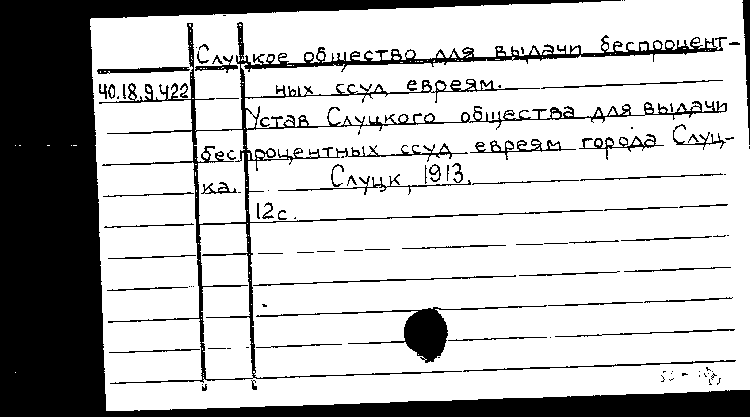 Слуцкое общество для выдачи беспроцент-
40.18.9.422 ных ссуд евреям.
Устав Слуцкого общества для выдачи
беспроцентных ссуд евреям города Слуц-
ка. Слуцк, 1913.
12с.